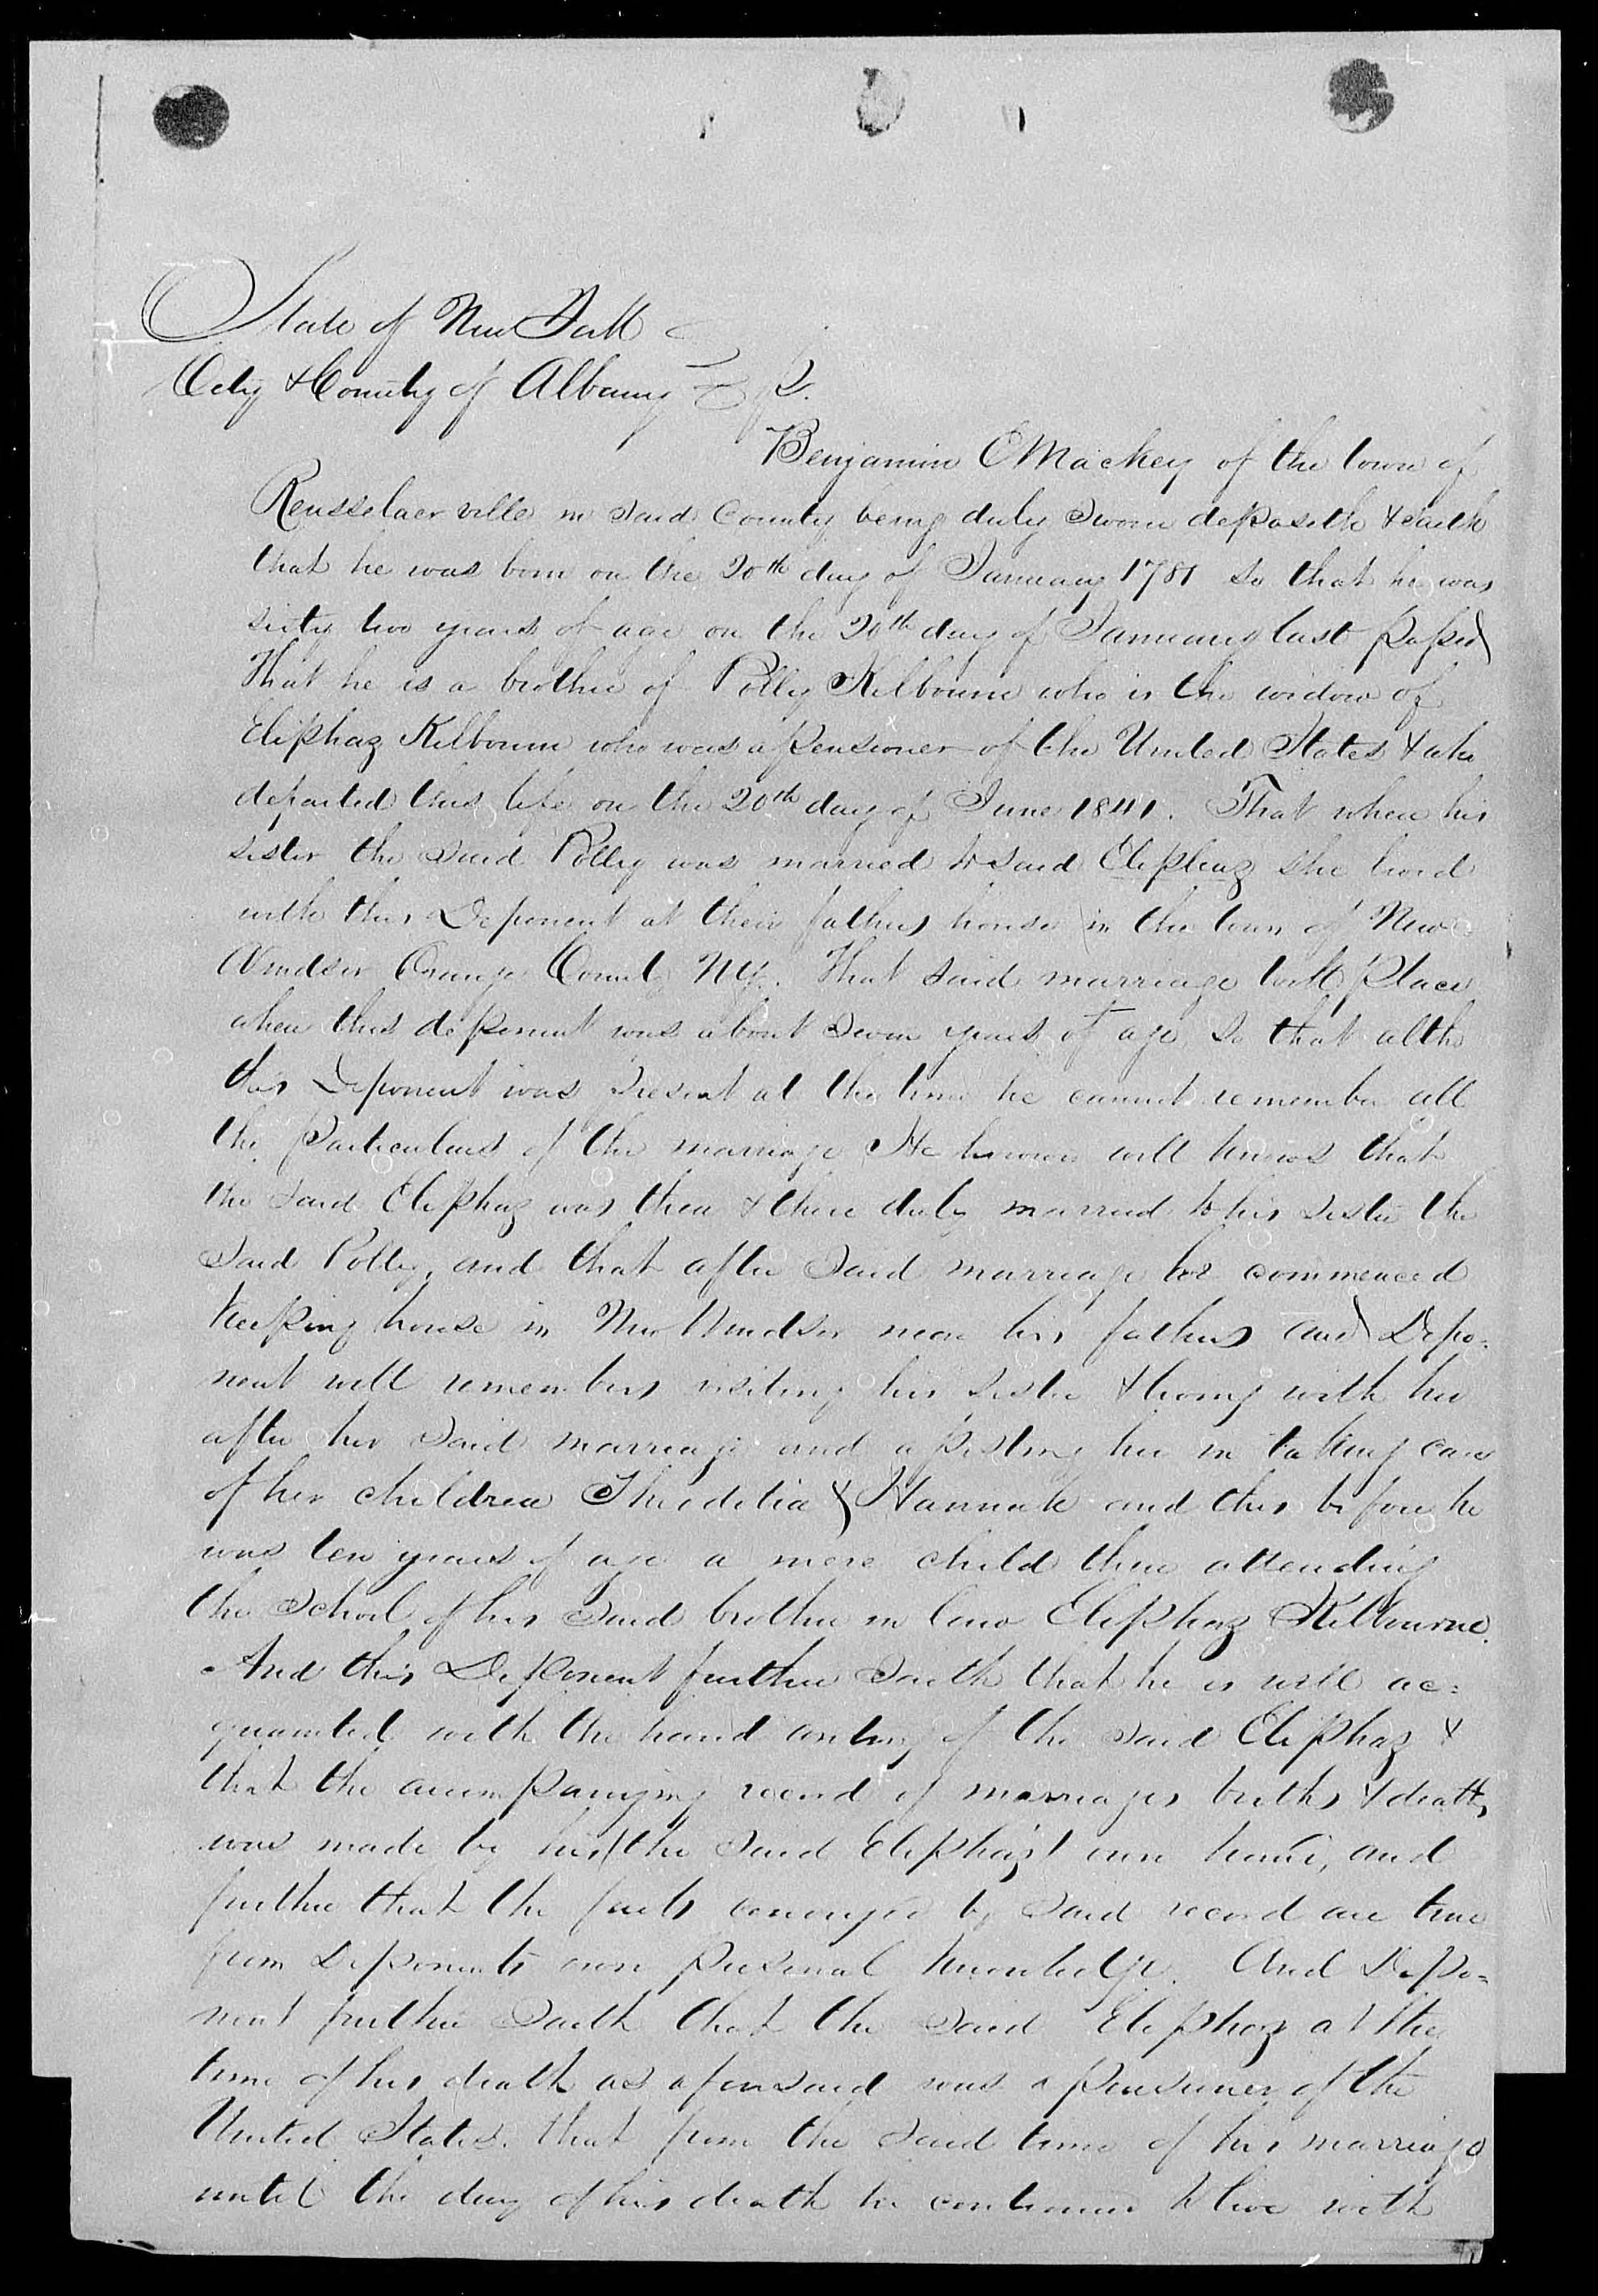 State of New York
City & County of Albany ss.
Benjamin C Mackey of the town of
Rensselaerville in said County being duly sworn deposeth & saith
that he was born on the 20th day of January 1781 so that he was
sixty two years of age on the 20th day of January last passed
That he is a brother of Polly Kilbourn who is the widow of
Eliphaz Kilbourn who was a pensioner of the United States & who
departed this life on the 20th day of June 1841. That when his
sister the said Polly was married to said Eliphaz she lived
with this Deponent at their fathers house in the town of New
Windsor Orange County NY. That said marriage took place
when this deponent was about seven years of age so that altho
this Deponent was present at the time he cannot remember all
the particulars of the marriage He however well knows that
the said Eliphaz was then & there duly married to his sister the
said Polly, and that after said marriage he commenced
keeping house in New Windsor near his fathers and Depo=
nent well remembers visiting his sister & living with her
after her said marriage and assisting her in taking care
of her children Theodotia & Hannah and this before he
was ten years of age a mere child then attending
the School of his said brother in law Eliphaz Kilbourne.
And this Deponent further saith that he is well ac=
quainted with the hand writing of the said Eliphaz &
that the accompanying record of marriages births & deaths
was made by his (the said Eliphaz's) own hand, and
further that the facts conveyed by said record are true
from Deponents own personal knowledge. And Depo=
nent further saith that the said Eliphaz at the
time of his death as aforesaid was a pensioner of the
United States. that from the said time of his marriage
until the day of his death he continued to live with